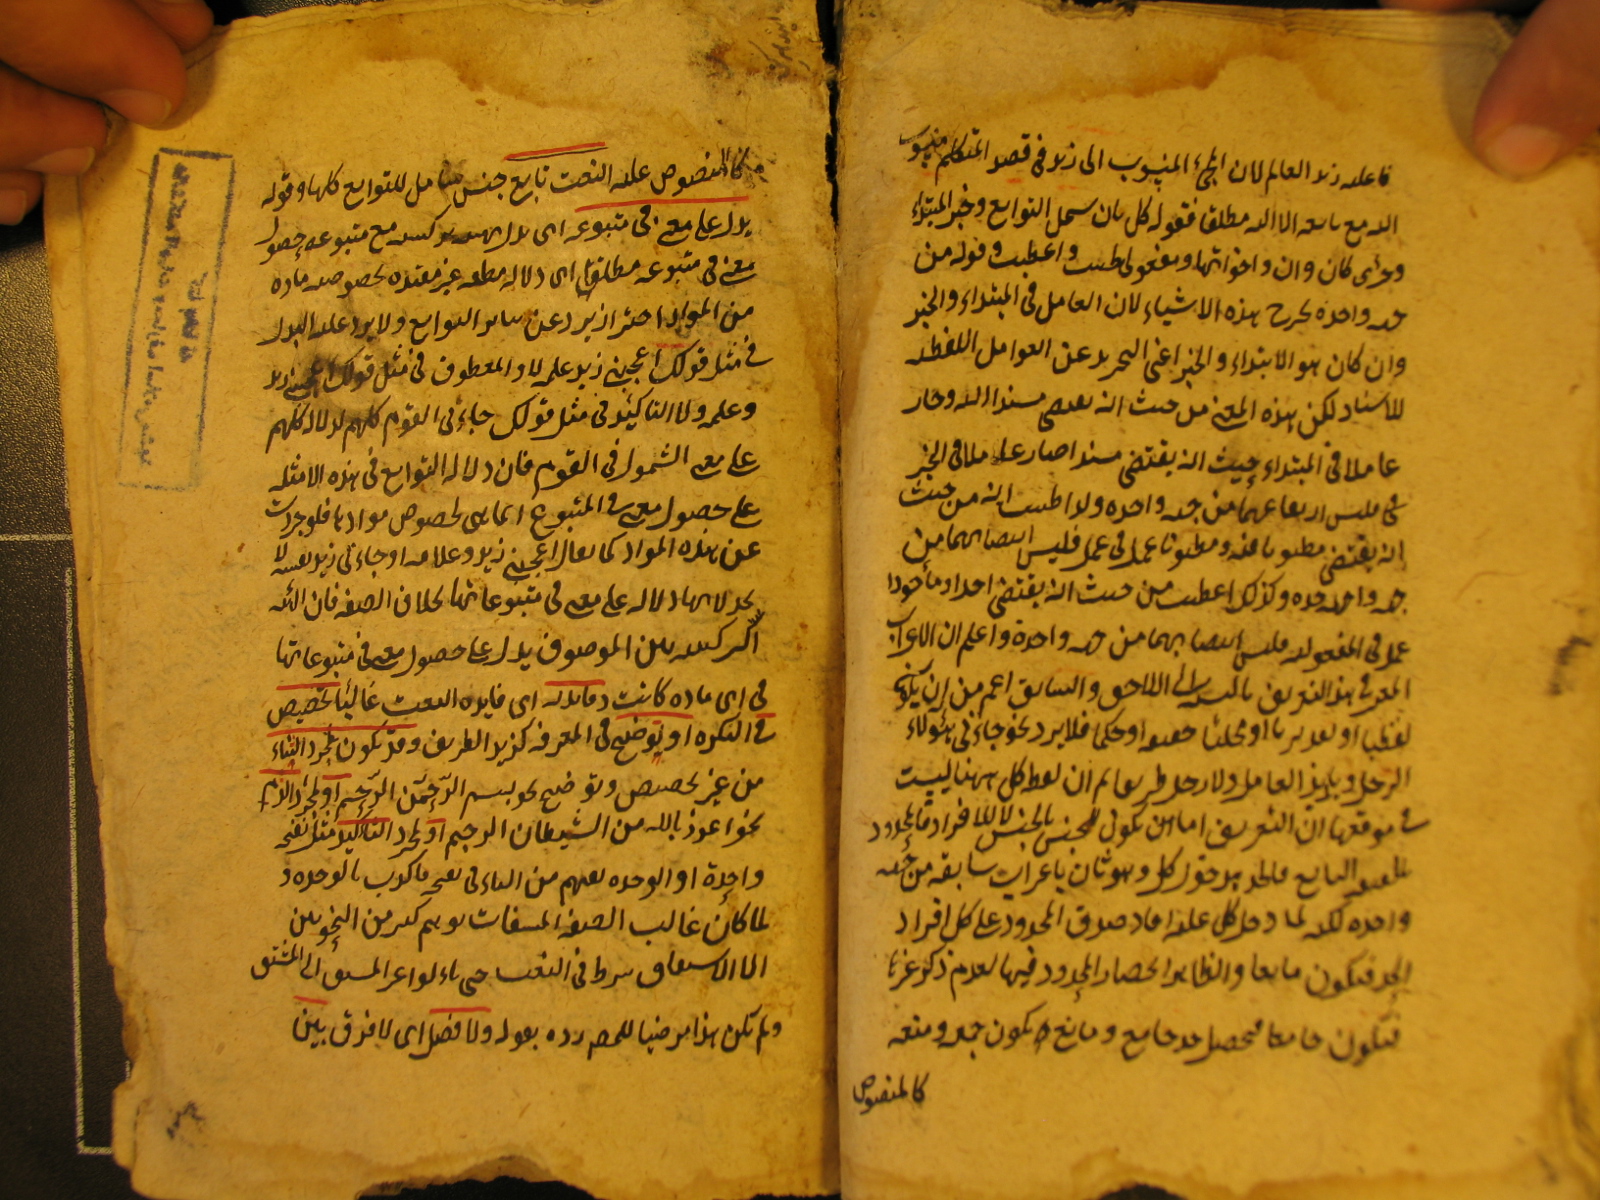 فاعلية زيد العالم لان المجئ المنسوب الى زيد في قصد المتكلم منسوب
اليه مع تابعه لا اليه مطلقا فقوله كل ثان يشمل التوابع وخبر المبتداء
وخبرى كان وان واخواتها ومفعولى ظننت واعطيت وقوله من
جهة واحدة يخرج هذه الاشياء لان العامل في المبتداء والخبر
وان كان هو الابتداء والخبر اعنى التجريد عن العوامل اللفظية
للاسناد لكن هذه المعنى من حيث انه يقتضى مسندا اليه وصار
عاملا في المبتداء وحيث انه يقتضى مسندا صار عاملا في الخبر
فليس ارتفاعهما من جهة واحدة وكذا ظننت انه من حيث
انه يقتضى مظنونا فيه ومظنونا عمل في عمل فليس انتصابهما من
جهة واحدة وكذلك اعطيت من حيث انه يقتضى اخذا وماخوذا
عمل في المفعولية فليس انتصابهما من جهة واحدة واعلم ان الاعراب
المعتبر في هذا التعريف بالنسبة الى اللاحق والسابق اعم من ان يكون
لفظيا او تقديريا او محليا حقيقة او حكما فلا يرد نحو جاءنى هؤلاء
الرجل ويا زيد العاقل ولا رجل ظريفا ثم ان لفظ كل ههنا ليست
في موقعها لان التعريف انما يكون للجنس بالجنس لا للافراد فالمحدود
بالحقيقة التابع والحد مدخول كل وهو ثان باعراب سابقه من جهة
واحدة لكنه لما دخل كل عليه افاد صدق المحدود على كل افراد
الحد فيكون مانعا والظاهر انحصار المحدود فيها لعدم ذكر غيرها
فيكون جامعا فيحصل حد جامع ومانع يكون جمعه ومنعه
كالمنصوص
كالمنصوص عليه النعت تابع جنس شامل للتوابع كلها وقوله
يدل على معنى في متبوعه اى يدل بهيئة تركيبية مع متبوعه على حصول
معنى في متبوعه مطلقا اى دلالة مطلقة غير مقيدة بخصوصية مادة
من المواد احترازا به عن سائر التوابع ولا يرد عليه البدل
في مثل قولك اعجبنى زيد علمه ولا المعطوف في مثل قولك اعجبنى زيد
وعلمه ولا التاكيد في مثل قولك جاءنى القوم كلهم لدلالة كلهم
على معنى الشمول في القوم فان دلالة التوابع في هذه الامثلة
على حصول معنى في المتبوع انما هى لخصوص موادها فلو جردت
عن هذه المواد كما يقال اعجبنى زيد وغلامه او جاءنى زيد نفسه لا
تجد لها دلالة على معنى في متبوعاتها بخلاف الصفة فان الهيئة
التركيبية بين الموصوف يدل على حصول معنى في متبوعاتها
في اى مادة كانت وفائدته اى فائدة النعت غالبا تخصيص
في النكرة او توضيح في المعرفة كزيد الظريف وقد يكون لمجرد الثناء
من غير تخصيص وتوضيح نحو بسم الله الرحمن الرحيم او لمجرد الذم
نحو اعوذ بالله من الشيطان الرجيم او لمجرد التاكيد مثل نفخة
واحدة اذ الوحدة تفهم من التاء في نفخة فاكدت بالوحدة و
لما كان غالب الصفة المشتقات توهم كثير من النحويين
ان الاشتقاق شرط في النعت حتى تاولوا غير المشتق الى المشتق
ولم يكن هذا مرضيا للمصنف رده بقوله ولا فصل اى لا فرق بين